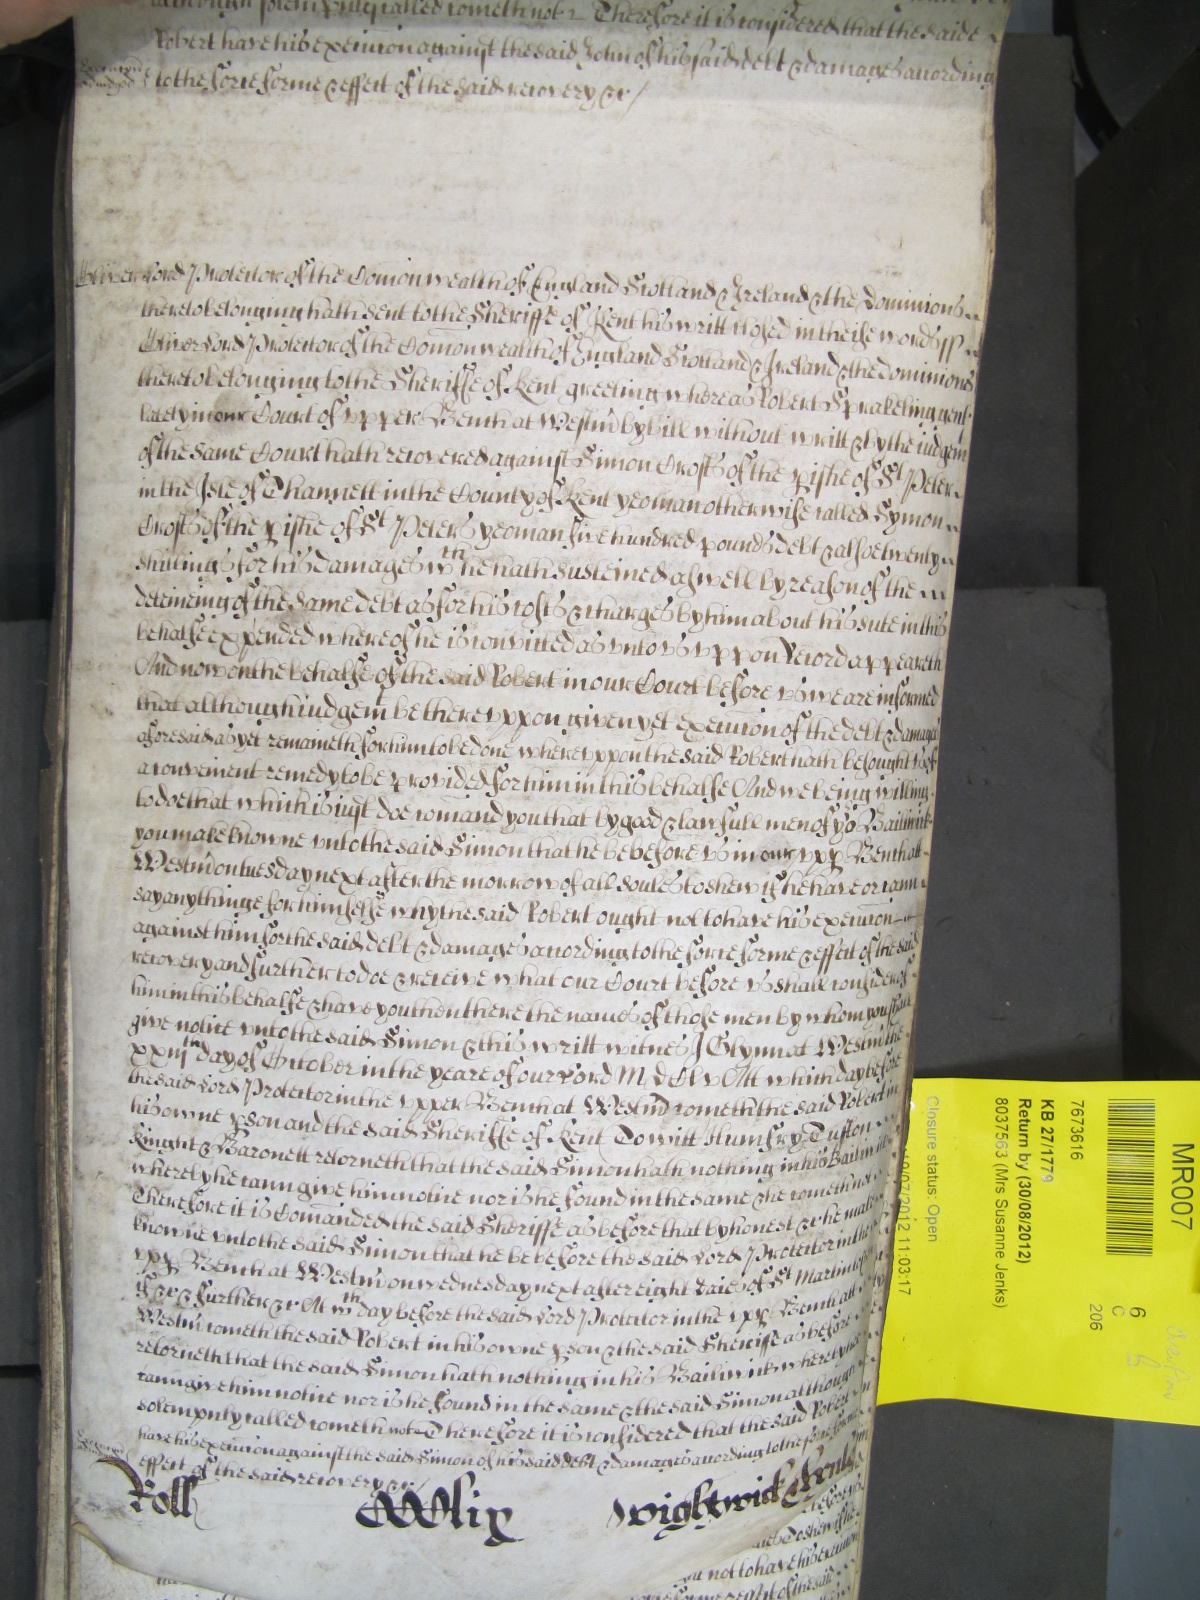 although solempnly called cometh not Therefore it is considered that the saide
Robert have his execucion against the said John of his said debt & damages according
to the force forme & effect of the said recovery &c
Oliver Lord Protector of the Comonwealth of England Scotland & Ireland & the Dominions
thereto belonging hath sent to the Sheriffe of Kent his writt closed in theise words ss
Oliver Lord Protector of the Comonwealth of England Scotland & Ireland & the dominions
thereto belonging to the Sheriffe of Kent greeting whereas Robert Sprakeling gent
lately in our Court of upper Bench at Westm by bill without writt & by the Judgem
of the same Court hath recovered against Simon Crofts of the pishe of St Peter
in the Isle of Thannett in the County of Kent yeoman otherwise called Symon
Crofts of the pishe of St Peters yeoman five hundred pounds debt & alsoe twenty
shillings for his damages wth he hath susteined aswell by reason of the
deteineing of the same debt as for his costs & charges by him about his sute in this
behalfe expended whereof he is convicted as unto us uppon Record appeareth
And now on the behalfe of the said Robert in our Court before us we are informed
that although iudgem be thereuppon given yet execucion of the debt & damages
aforesaid as yet remaineth for him to be done whereuppon the said Robert hath besought us of
a convenient remedy to be provided for him in this behalfe And we being willing
to doe that which is just doe comand you that by good & lawfull men of yor Bailiwick
you make knowne unto the said Simon that he be before us in our upp Bench att
Westm on tuesday next after the morrow of all soules to shew if he have or cann
say anythinge for himselfe why the said Robert ought not to have his execucion
against him for the said debt & damages according to the force forme & effect of the said
recovery and further to doe & receive what our Court before us shall consider of
him in this behalfe & have you then there the names of those men by whom you shall
give notice unto the said Simon & this writt witnes J Glynn at Westm the
xxiijth day of October in the yeare of our Lord M d C L v Att which day before
the said Lord Protector in the upper Bench at Westm cometh the said Robert in
his owne pson and the said Sheriffe of Kent To witt Humfry Tufton
knight & Baronett retorneth that the said Simon hath nothing in his Bailiwick
whereby he cann give him notice nor is he found in the same & he cometh not
Therefore it is Comanded the said Sheriffe as before that by honest &c he make
knowne unto the said Simon that he be before the said Lord Protector in the
upp Bench at Westm on wednesday next after eight daies of St Martin to shew
if &c & further &c At wth day before the said Lord Protector in the upp Bench att
Westm cometh the said Robert in his owne pson & the said Sheriffe as before
retorneth that the said Simon hath nothing in his Bailiwick whereby he
cann give him notice nor is he found in the same & the said Simon although
solempnly called cometh not Therefore it is considered that the said Robert
have his execucion against the said Simon of his said debt & damages according to the force forme
effect of the said recovery &c
Roll
Wightwick
not to have his execucion
MR007
7673616
KB 27/1779
Return by (30/08/2012)
8037563 (Mrs Susanne Jenks)
Closure status: Open
/07/2012 11:03:17
6
C
206